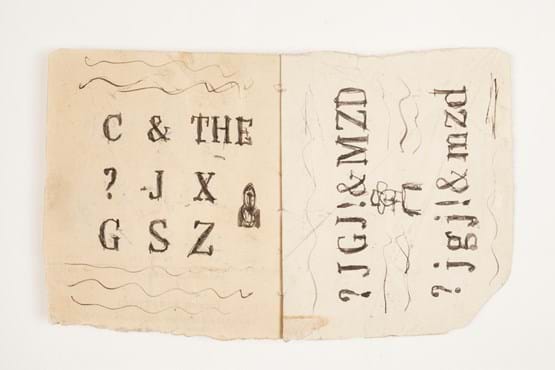 C & THE
? J X
G S Z
? JGJ!& MZD
? jgj!& mzd